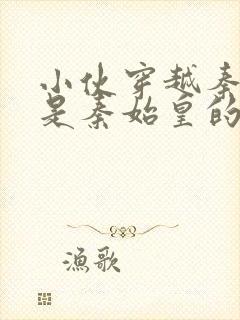 小伙穿越秦
是秦始皇的
渔歌